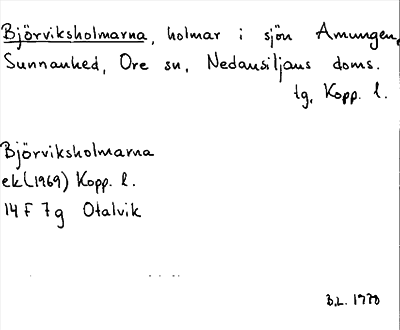 Björviksholmarna, holmar i sjön Amungen,
Sunnanhed, Ore sn, Nedansiljans doms.
tg, Kopp. l.
Björviksholmarna
ek (1969) Kopp. l.
14 F 7 g Otalvik
B.L. 1970